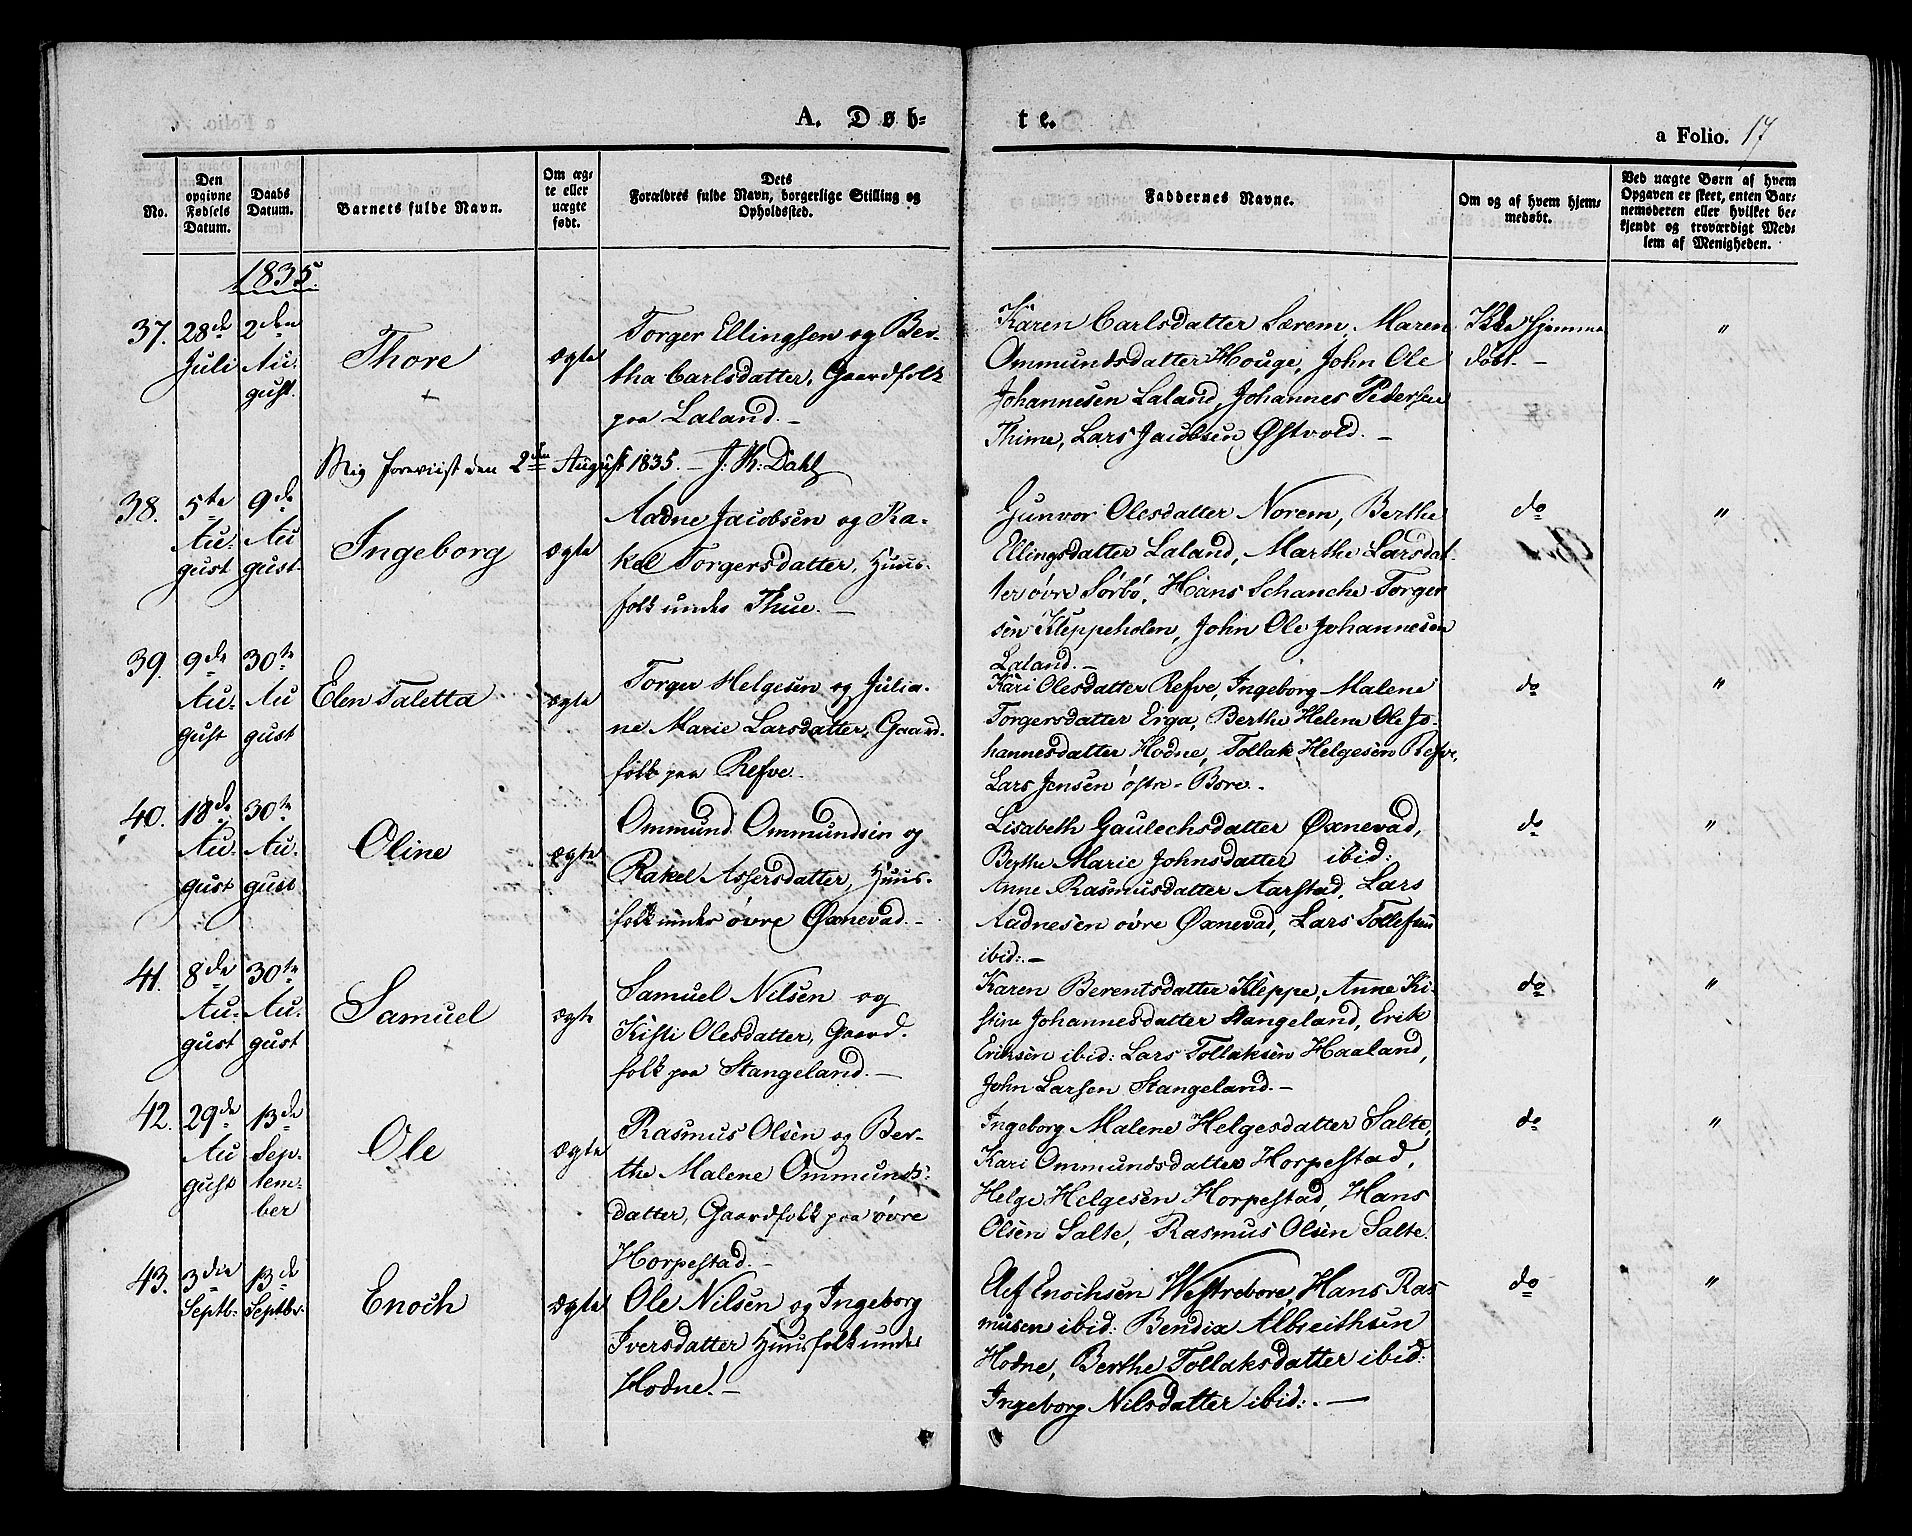 A. Døb-
te.
a Folio. 17
No.
Den opgivne Fødsels Datum.
Daabs Datum.
Barnets fulde Navn.
Om ægte eller uægte født.
Dets
Forældres fulde Navn, borgerlige Stilling og
Opholdssted.
Faddernes Navne.
Om og af hvem hjem-
medøbt.
Ved uægte Børn af hvem
Opgaven er skeet, enten Bar-
nemoderen eller hvilket be-
kjendt og troværdigt Med-
lem af Menigheden.
1835.
37.
28de
Juli
2den
Au-
gust.
Thore
ægte
Torger Ellingsen og Ber-
tha Carlsdatter, Gaardfolk
paa Laland. -
Karen Carlsdatter Særem, Maren
Ommundsdatter Houge, John Ole
Johannesen Laland, Johannes Pedersen
Thime, Lars Jacobsen Østvold. -
Ikke hjemme
døbt. -
"
Mig foreviist den 2den August 1835. - J. K: Dahl
38.
5te
Au-
gust
9de
Au
gust.
Ingeborg
ægte
Aadne Jacobsen og Ra-
kel Torgersdatter, Huus-
folk under Thue. -
Gunvor Olesdatter Norem, Berthe
Ellingsdatter Laland, Marthe Larsdat-
ter øvre Sørbø, Hans Schanche Torger
sen Kleppeholen, John Ole Johannesen
Laland. -
do
"
39.
9de
Au-
gust
30te
Au
gust
Elen Taletta
ægte
Torger Helgesen og Julia-
ne Marie Larsdatter, Gaard-
folk paa Refve.
Kari Olesdatter Refve, Ingeborg Malene
Torgersdatter Erga, Berthe Helene Ole Jo-
hannesdatter Hodne, Tollak Helgesen Refve,
Lars Jensen østre-Bore. -
do
"
40.
18de
Au-
gust
30te
Au-
gust
Oline
ægte
Ommund Ommundsen og
Rakel Assersdatter, Huus-
folk under øvre Øxnevad. -
Lisabeth Gaulechsdatter Øxnevad,
Berthe Marie Johnsdatter ibid:
Anne Rasmusdatter Aarstad, Lars
Aadnesen øvre Øxnevad, Lars Tollefsen
ibid: -
do
"
41.
8de
Au-
gust
30te
Au-
gust
Samuel
ægte
Samuel Nilsen og
Kisti Olesdatter, Gaard-
folk paa Stangeland. -
Karen Berentsdatter Kleppe, Anne Ki-
stine Johannesdatter Stangeland, Erik
Eriksen ibid: Lars Tollaksen Haaland,
John Larsen Stangeland. -
do
"
42.
29de
Au
gust
13de
Sep-
tem-
ber
Ole
ægte
Rasmus Olsen og Ber-
the Malene Ommunds-
datter, Gaardfolk paa øvre
Horpestad. -
Ingeborg Malene Helgesdatter Salte,
Kari Ommundsdatter Horpestad,
Helge Helgesen Horpestad, Hans
Olsen Salte, Rasmus Olsen Salte.
do
"
43.
3die
Septb.
13de
Septbr.
Enoch
ægte
Ole Nilsen og Ingeborg
Iversdatter Huusfolk under
Hodne. -
Elef Enochsen Westrebore, Hans Ras-
musen ibid: Bendix Albreithsen
Hodne, Berthe Tollaksdatter ibid:
Ingeborg Nilsdatter ibid: . -
do
"